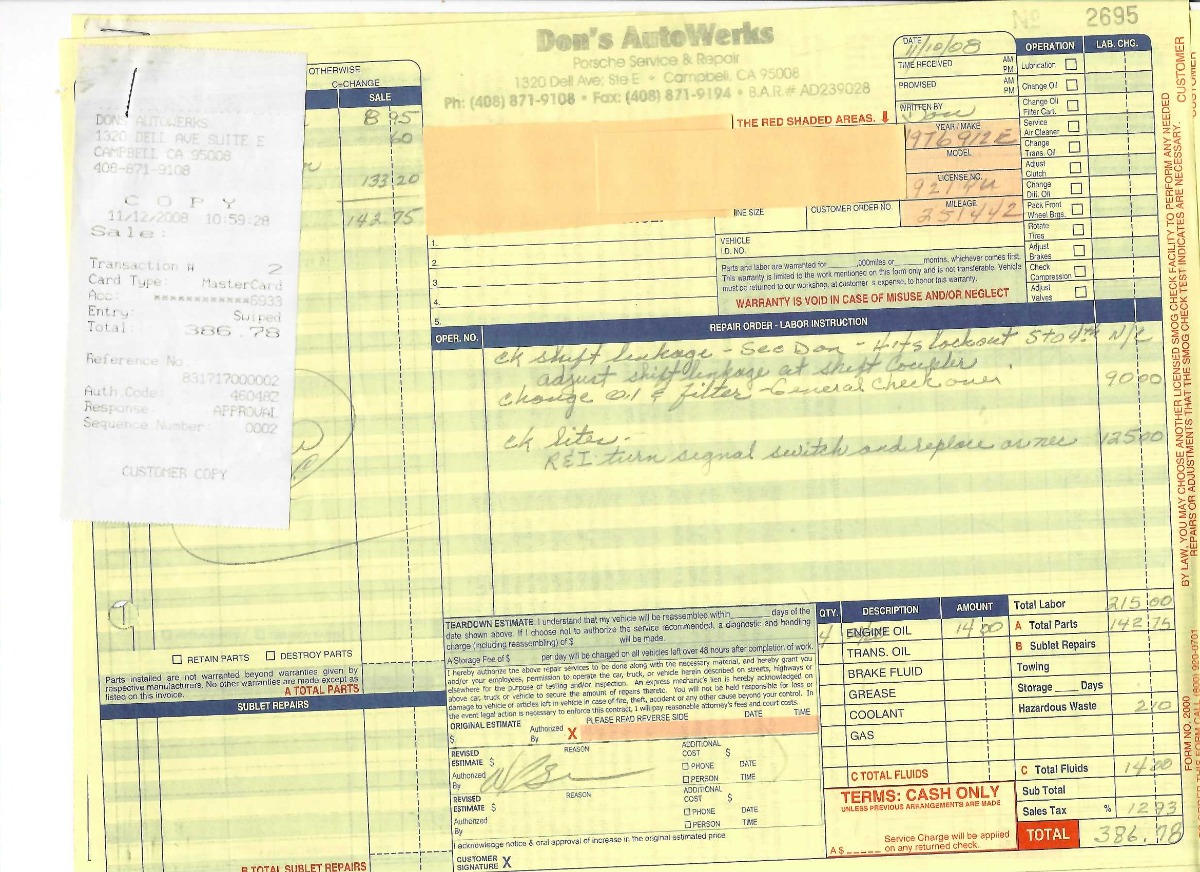 Nº 2695
Don's AutoWerks
Porsche Service & Repair
1320 Dell Ave; Ste E • Campbell, CA 95008
Ph: (408) 871-9108 • Fax: (408) 871-9194 • B.A.R.# AD239028
OTHERWISE
SALE
8 95
60
133 20
142.75
DONS AUTOWERKS
1320 DELL AVE SUITE E
CAMPBELL CA 95008
408-871-9108
COPY
11/12/2008 10:59:28
Sale:
Transaction # 2
Card Type: MasterCard
Acc: ************6933
Entry: Swiped
Total: 386.78
Reference No.
831717000002
Auth.Code: 460482
Response: APPROVAL
Sequence Number: 0002
CUSTOMER COPY
THE RED SHADED AREAS.
DATE 11/10/08
TIME RECEIVED AM PM
PROMISED AM PM
WRITTEN BY Don
YEAR / MAKE
1976 912E
MODEL
LICENSE NO.
MILEAGE
351442
CUSTOMER ORDER NO.
VEHICLE
I.D. NO.
OPERATION LAB. CHG.
Lubrication
Change Oil
Change Oil
Filter Cart.
Service
Air Cleaner
Change
Trans. Oil
Adjust
Clutch
Change
Diff. Oil
Pack Front
Wheel Brgs.
Rotate
Tires
Adjust
Brakes
Check
Compression
Adjust
Valves
1.
2.
3.
4.
5.
Parts and labor are warranted for ,000miles or months, whichever comes first.
This warranty is limited to the work mentioned on this form only and is not transferable. Vehicle
must be returned to our workshop, at customer's expense, to honor this warranty.
WARRANTY IS VOID IN CASE OF MISUSE AND/OR NEGLECT
OPER. NO. REPAIR ORDER - LABOR INSTRUCTION
ck shift linkage - See Don - Hits lockout 5 to 4th N/C
adjust shift linkage at shift coupler
change oil & filter - General Check over. 90 00
ck lites -
R&I turn signal switch and replace as nec 125 00
RETAIN PARTS DESTROY PARTS
Parts installed are not warranted beyond warranties given by
respective manufacturers. No other warranties are made except as
listed on this invoice.
A TOTAL PARTS
SUBLET REPAIRS
B TOTAL SUBLET REPAIRS
TEARDOWN ESTIMATE. I understand that my vehicle will be reassembled within days of the
date shown above. If I choose not to authorize the service recommended, a diagnostic and handling
charge (including reassembling) of $ will be made.
A Storage Fee of $ per day will be charged on all vehicles left over 48 hours after completion of work.
I hereby authorize the above repair services to be done along with the necessary material, and hereby grant you
and/or your employees, permission to operate the car, truck, or vehicle herein described on streets, highways or
elsewhere for the purpose of testing and/or inspection. An express mechanic's lien is hereby acknowledged on
above car, truck or vehicle to secure the amount of repairs thereto. You will not be held responsible for loss or
damage to vehicle or articles left in vehicle in case of fire, theft, accident or any other cause beyond your control. In
the event legal action is necessary to enforce this contract, I will pay reasonable attorney's fees and court costs.
PLEASE READ REVERSE SIDE
ORIGINAL ESTIMATE $ Authorized By X DATE TIME
REVISED ESTIMATE $ REASON ADDITIONAL COST $
Authorized By PHONE DATE
PERSON TIME
REVISED ESTIMATE $ REASON ADDITIONAL COST $
Authorized By PHONE DATE
PERSON TIME
I acknowledge notice & oral approval of increase in the original estimated price.
CUSTOMER SIGNATURE X
QTY. DESCRIPTION AMOUNT
4 ENGINE OIL 14 00
TRANS. OIL
BRAKE FLUID
GREASE
COOLANT
GAS
C TOTAL FLUIDS
TERMS: CASH ONLY
UNLESS PREVIOUS ARRANGEMENTS ARE MADE
A $ Service Charge will be applied
on any returned check.
Total Labor 215 00
A Total Parts 142 75
B Sublet Repairs
Towing
Storage Days
Hazardous Waste 2 10
C Total Fluids 14 00
Sub Total
Sales Tax % 12 93
TOTAL 386.78
BY LAW, YOU MAY CHOOSE ANOTHER LICENSED SMOG CHECK FACILITY TO PERFORM ANY NEEDED
REPAIRS OR ADJUSTMENTS THAT THE SMOG CHECK TEST INDICATES ARE NECESSARY.
CUSTOMER
FORM NO. 2000